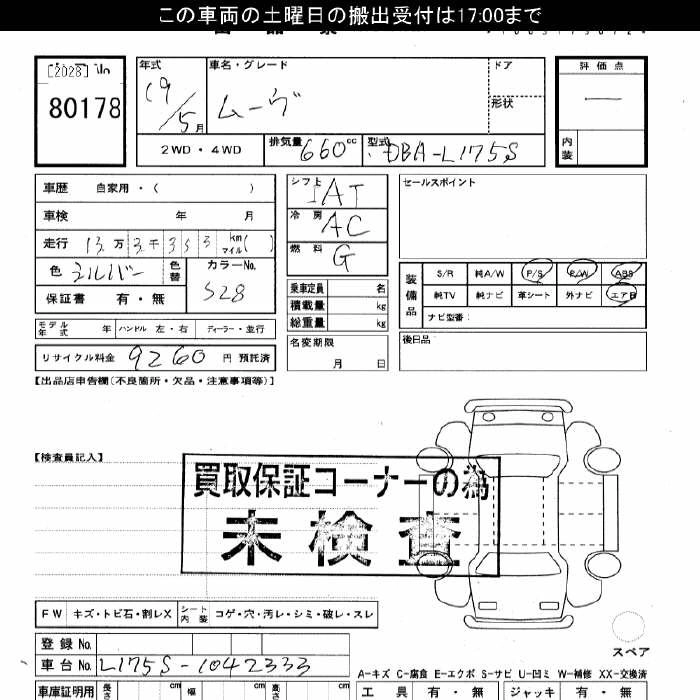 この車両の土曜日の搬出受付は17:00まで
[2028]
80178
年式
19/5月
車名・グレード
ムーヴ
ドア
形状
評価点
―
内装
2WD・4WD
排気量 660cc
型式 DBA-L175S
車歴 自家用・( )
車検 年 月
走行 13万3千353 km マイル( )
色 シルバー 色替
カラーNo. S28
保証書 有・無
モデル年式 年 ハンドル 左・右 ディーラー・並行
リサイクル料金 9260 円 預託済
シフト IAT
冷房 AC
燃料 G
乗車定員 名
積載量 kg
総重量 kg
名変期限
月 日
セールスポイント
装備品
S/R 純A/W P/S P/W ABS
純TV 純ナビ 革シート 外ナビ エアB
ナビ型番:
後日品
【出品店申告欄(不良箇所・欠品・注意事項等)】
【検査員記入】
買取保証コーナーの為
未検査
FW キズ・トビ石・割レX シート内装 コゲ・穴・汚レ・シミ・破レ・スレ
スペア
登録No.
車台No. L175S-1042333
A-キズ C-腐食 E-エクボ S-サビ U-凹ミ W-補修 XX-交換済
車庫証明用 長さ cm 幅 cm 高さ cm
工具 有・無 ジャッキ 有・無